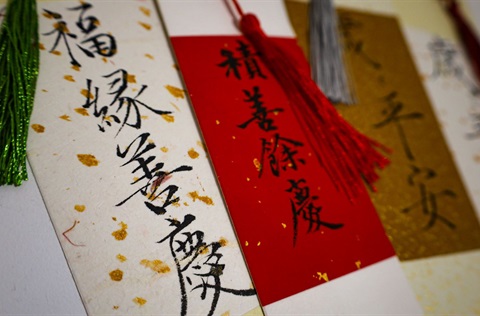 福緣善慶
積善餘慶
歲平安